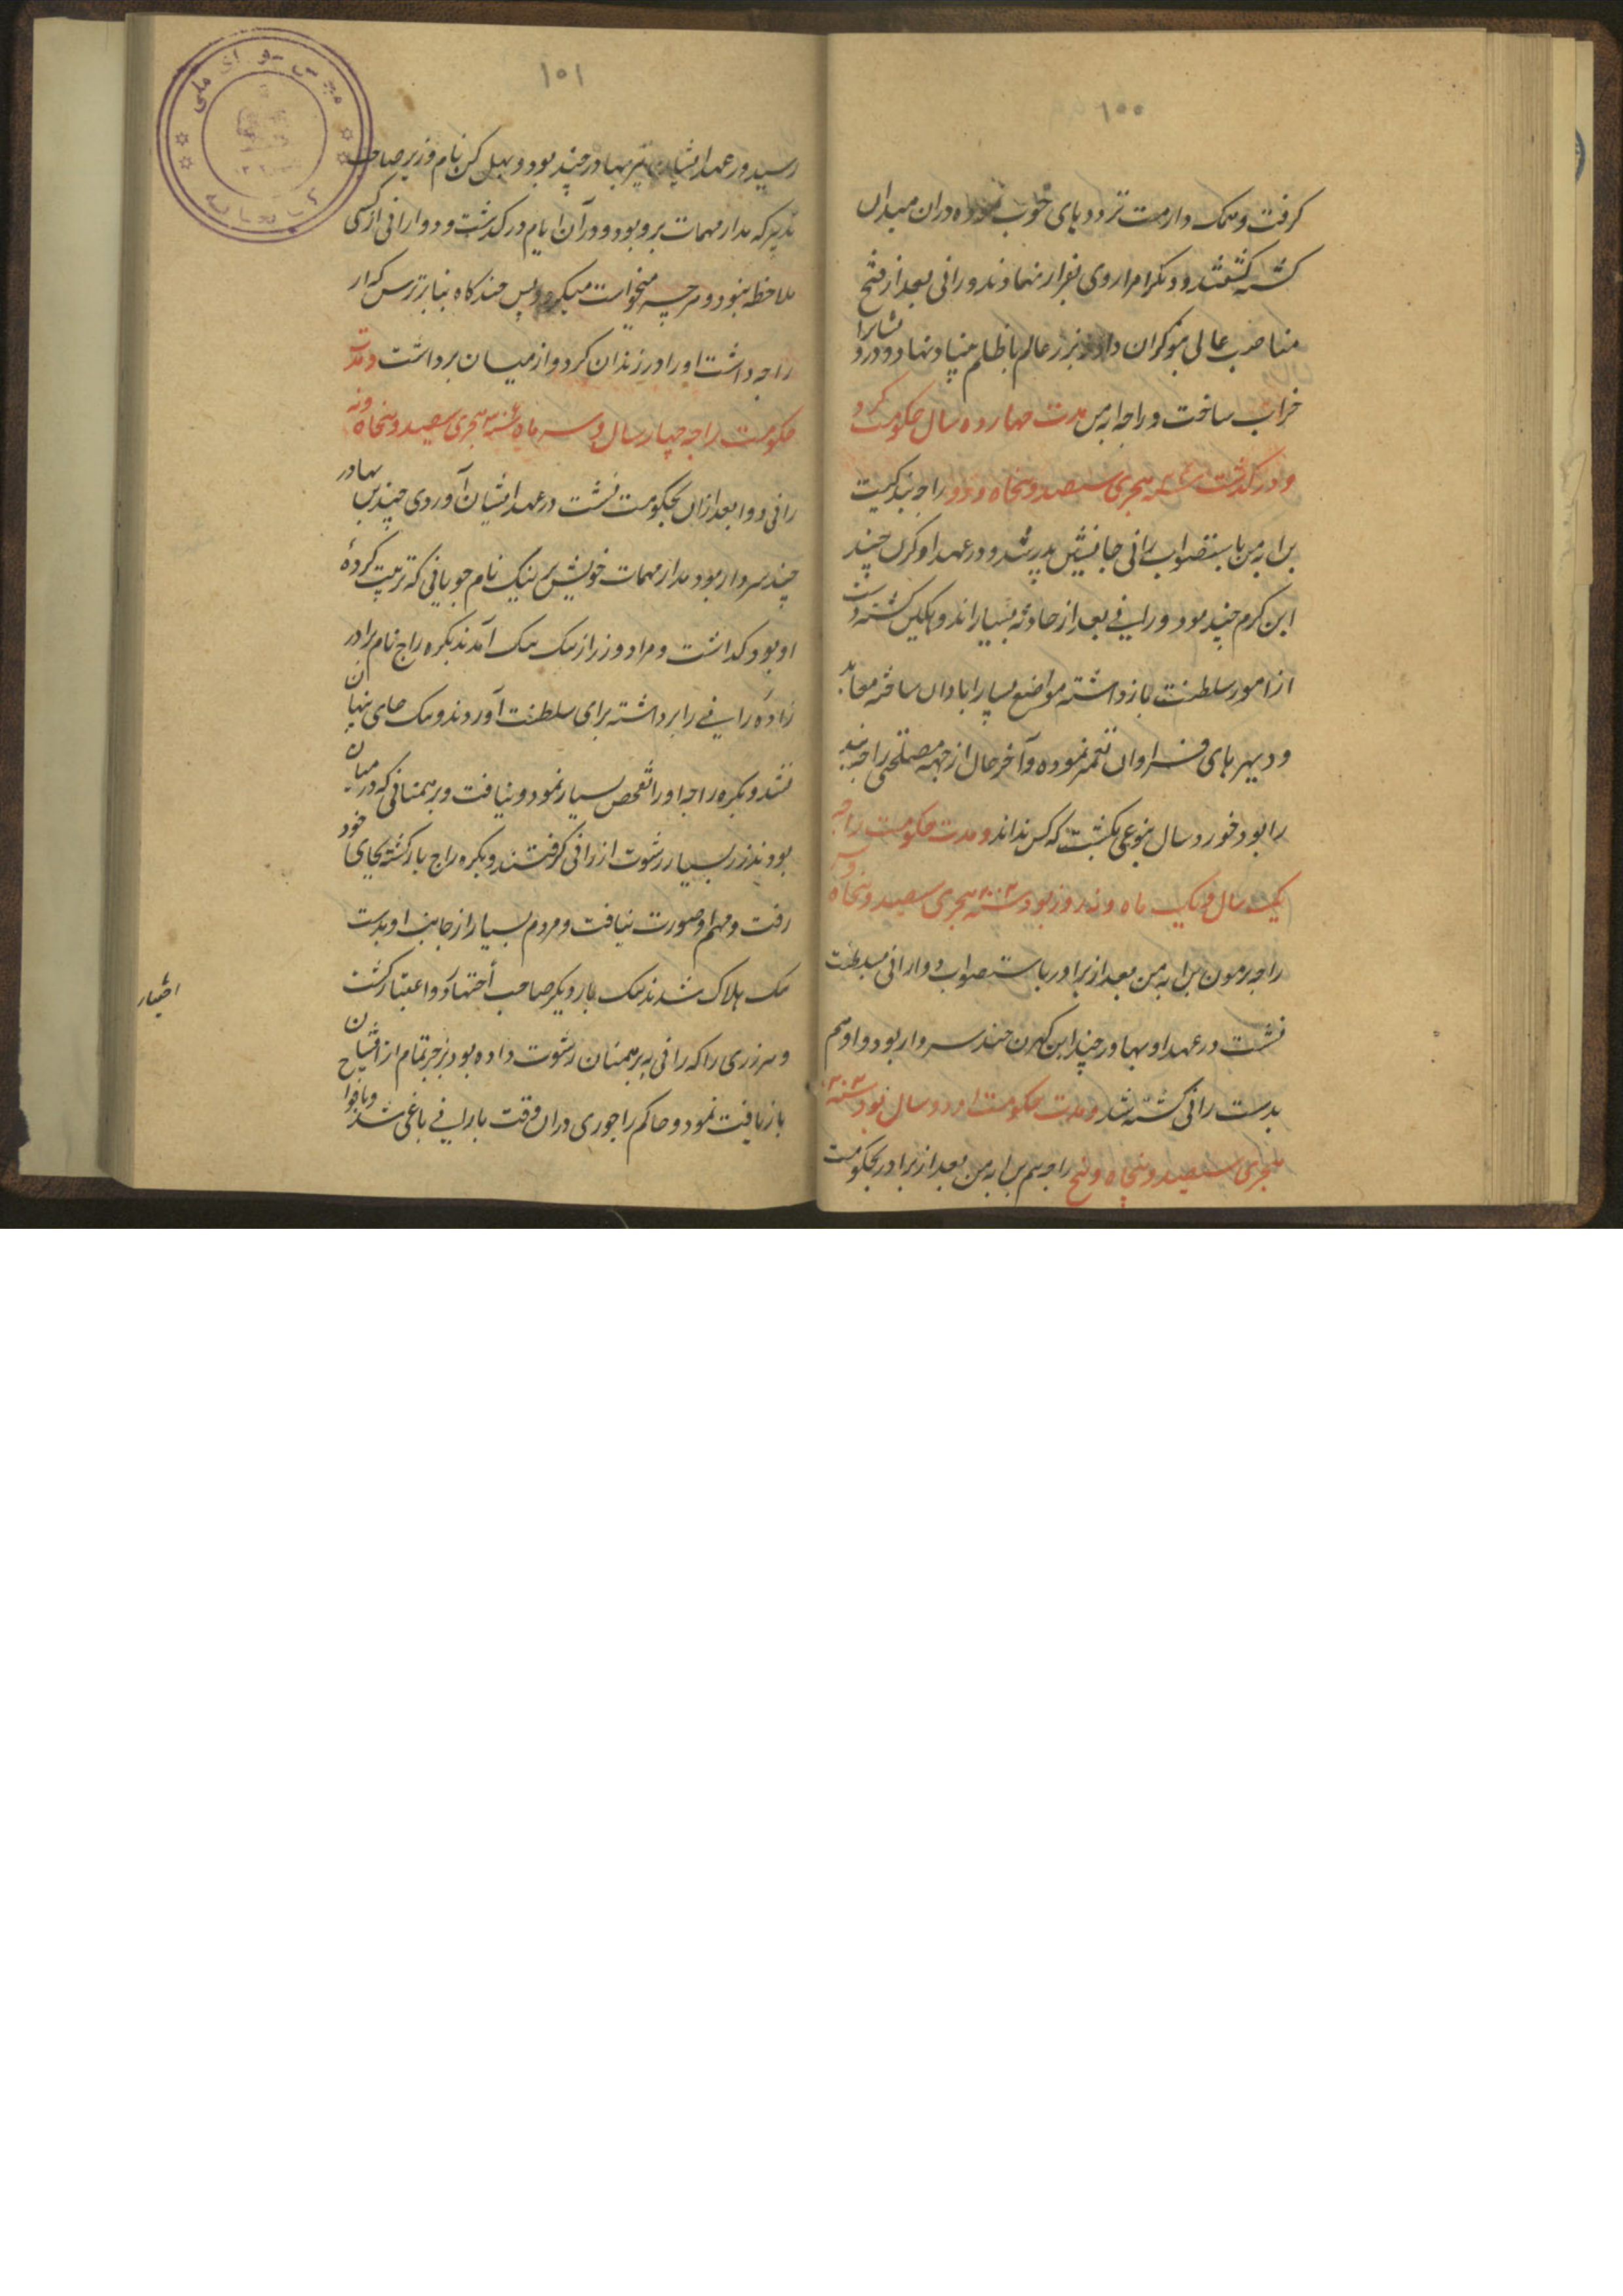 ۱۰۰
کرفت و تنک دارمت ترددهای خوب نموده دران میدان
کشته کشتند و دیکر امرا روی بفرار نهادند و رانی بعد از فتح
مناصب عالی بنوکران داده بزر عالم باظلم بنیاد نهاد و درو
خراب ساخت و راجه ابهمن مدت چهارده سال حکومت کرد
و درکذشت سنه هجری سیصد و پنجاه و دو راجه نندکیت
بن ابهمن باستصواب رانی جانشین پدر شد و در عهد او کرن چند
ابن کرم چند بود و رانی بعد از حادثه بسیار اندوهکین کشته دست
از امور سلطنت بازداشته مواضع بسیار ابادان ساخته معابد
و دیهرهای فراوان تعمیر نموده و آخر حال از جهة مصلحتی راجه نند
را بود خورد سال بنوعی بکشت که کس نداند و مدت حکومت راجه
یک سال و یک ماه و نه روز بود سنه هجری سیصد و پنجاه و سه
راجه بن ابهمن بعد از برادر باستصواب دوا رانی بسلطنت
نشست در عهد او بهادر چند ابن کهرن چند سردار بود و او هم
بدست رانی کشته شد و مدت حکومت او دو سال بود سنه
هجری سیصد و پنجاه و پنج راجه بهم بن ابهمن بعد از برادر بحکومت
۱۰۱
رسید در عهد ایشان نیز بهادر چند بود و بهل کن نام وزیر صاحب
تدبیر که مدار مهمات برو بود و در آن ایام درکذشت و دوا رانی از کسی
ملاحظه ننمود و هرچه میخواست میکرد و پس چند کاه بنابر ترس که از
راجه داشت او را در زندان کرد و از میان برداشت و مدت
حکومت راجه چهار سال و سه ماه سنه هجری سیصد و پنجاه و نه
رانی دوا بعد ازان بحکومت نشست در عهد ایشان آوردی چند بن بهادر
چند سردار بود مدار مهمات خویش بر تنک نام چوپانی که تربیت کردهٔ
او بود کذاشت و مراد وزراز تنک تنک آمدند بکره راج نام برادر
زادهٔ رانی را برداشته برای سلطنت آوردند و تنک جای پنهان
شد و بکره راجه او را تفحص بسیار نمود و نیافت و برهمنانی که در میان
بودند زر بسیار رشوت از رانی کرفتند و بکره راج بازکشته بجای خود
رفت و مهم او صورت نیافت و مردم بسیار از جانب او بدست
تنک هلاک شدند تنک بار دیکر صاحب اجتهاد و اعتبار کشت
و هر زری را که رانی به برهمنان رشوت داده بود بزجر تمام از ایشان
بازیافت نمود و حاکم راجوری دران وقت بارانی باغی شد
اختیار